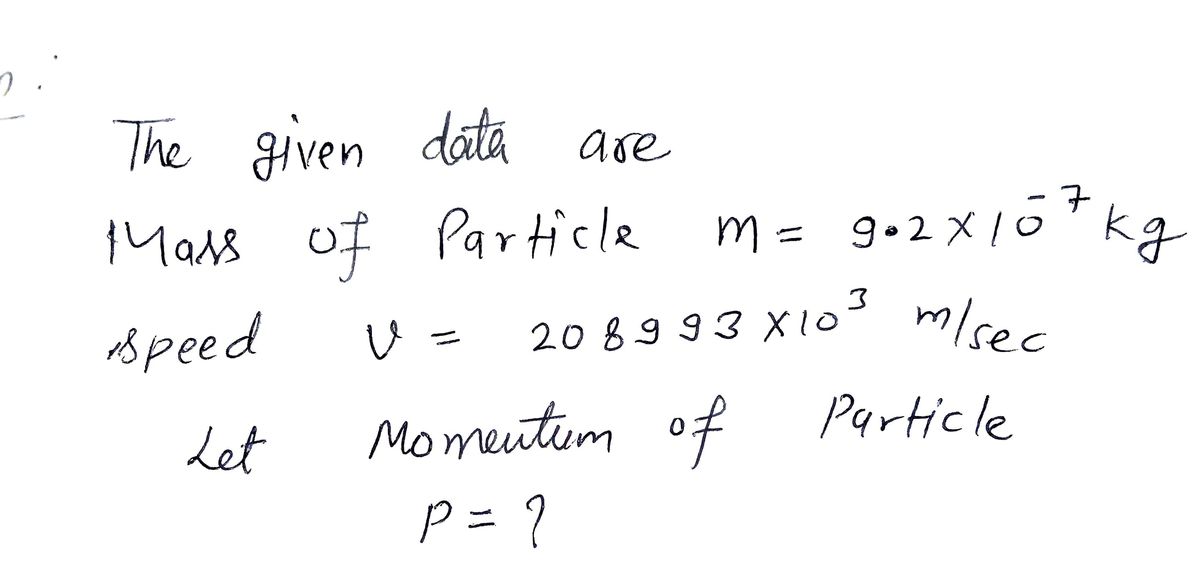 The given data are
Mass of Particle m = 9.2 × 10⁻⁷ kg
speed v = 208993 × 10³ m/sec
Let Momentum of Particle
P = ?